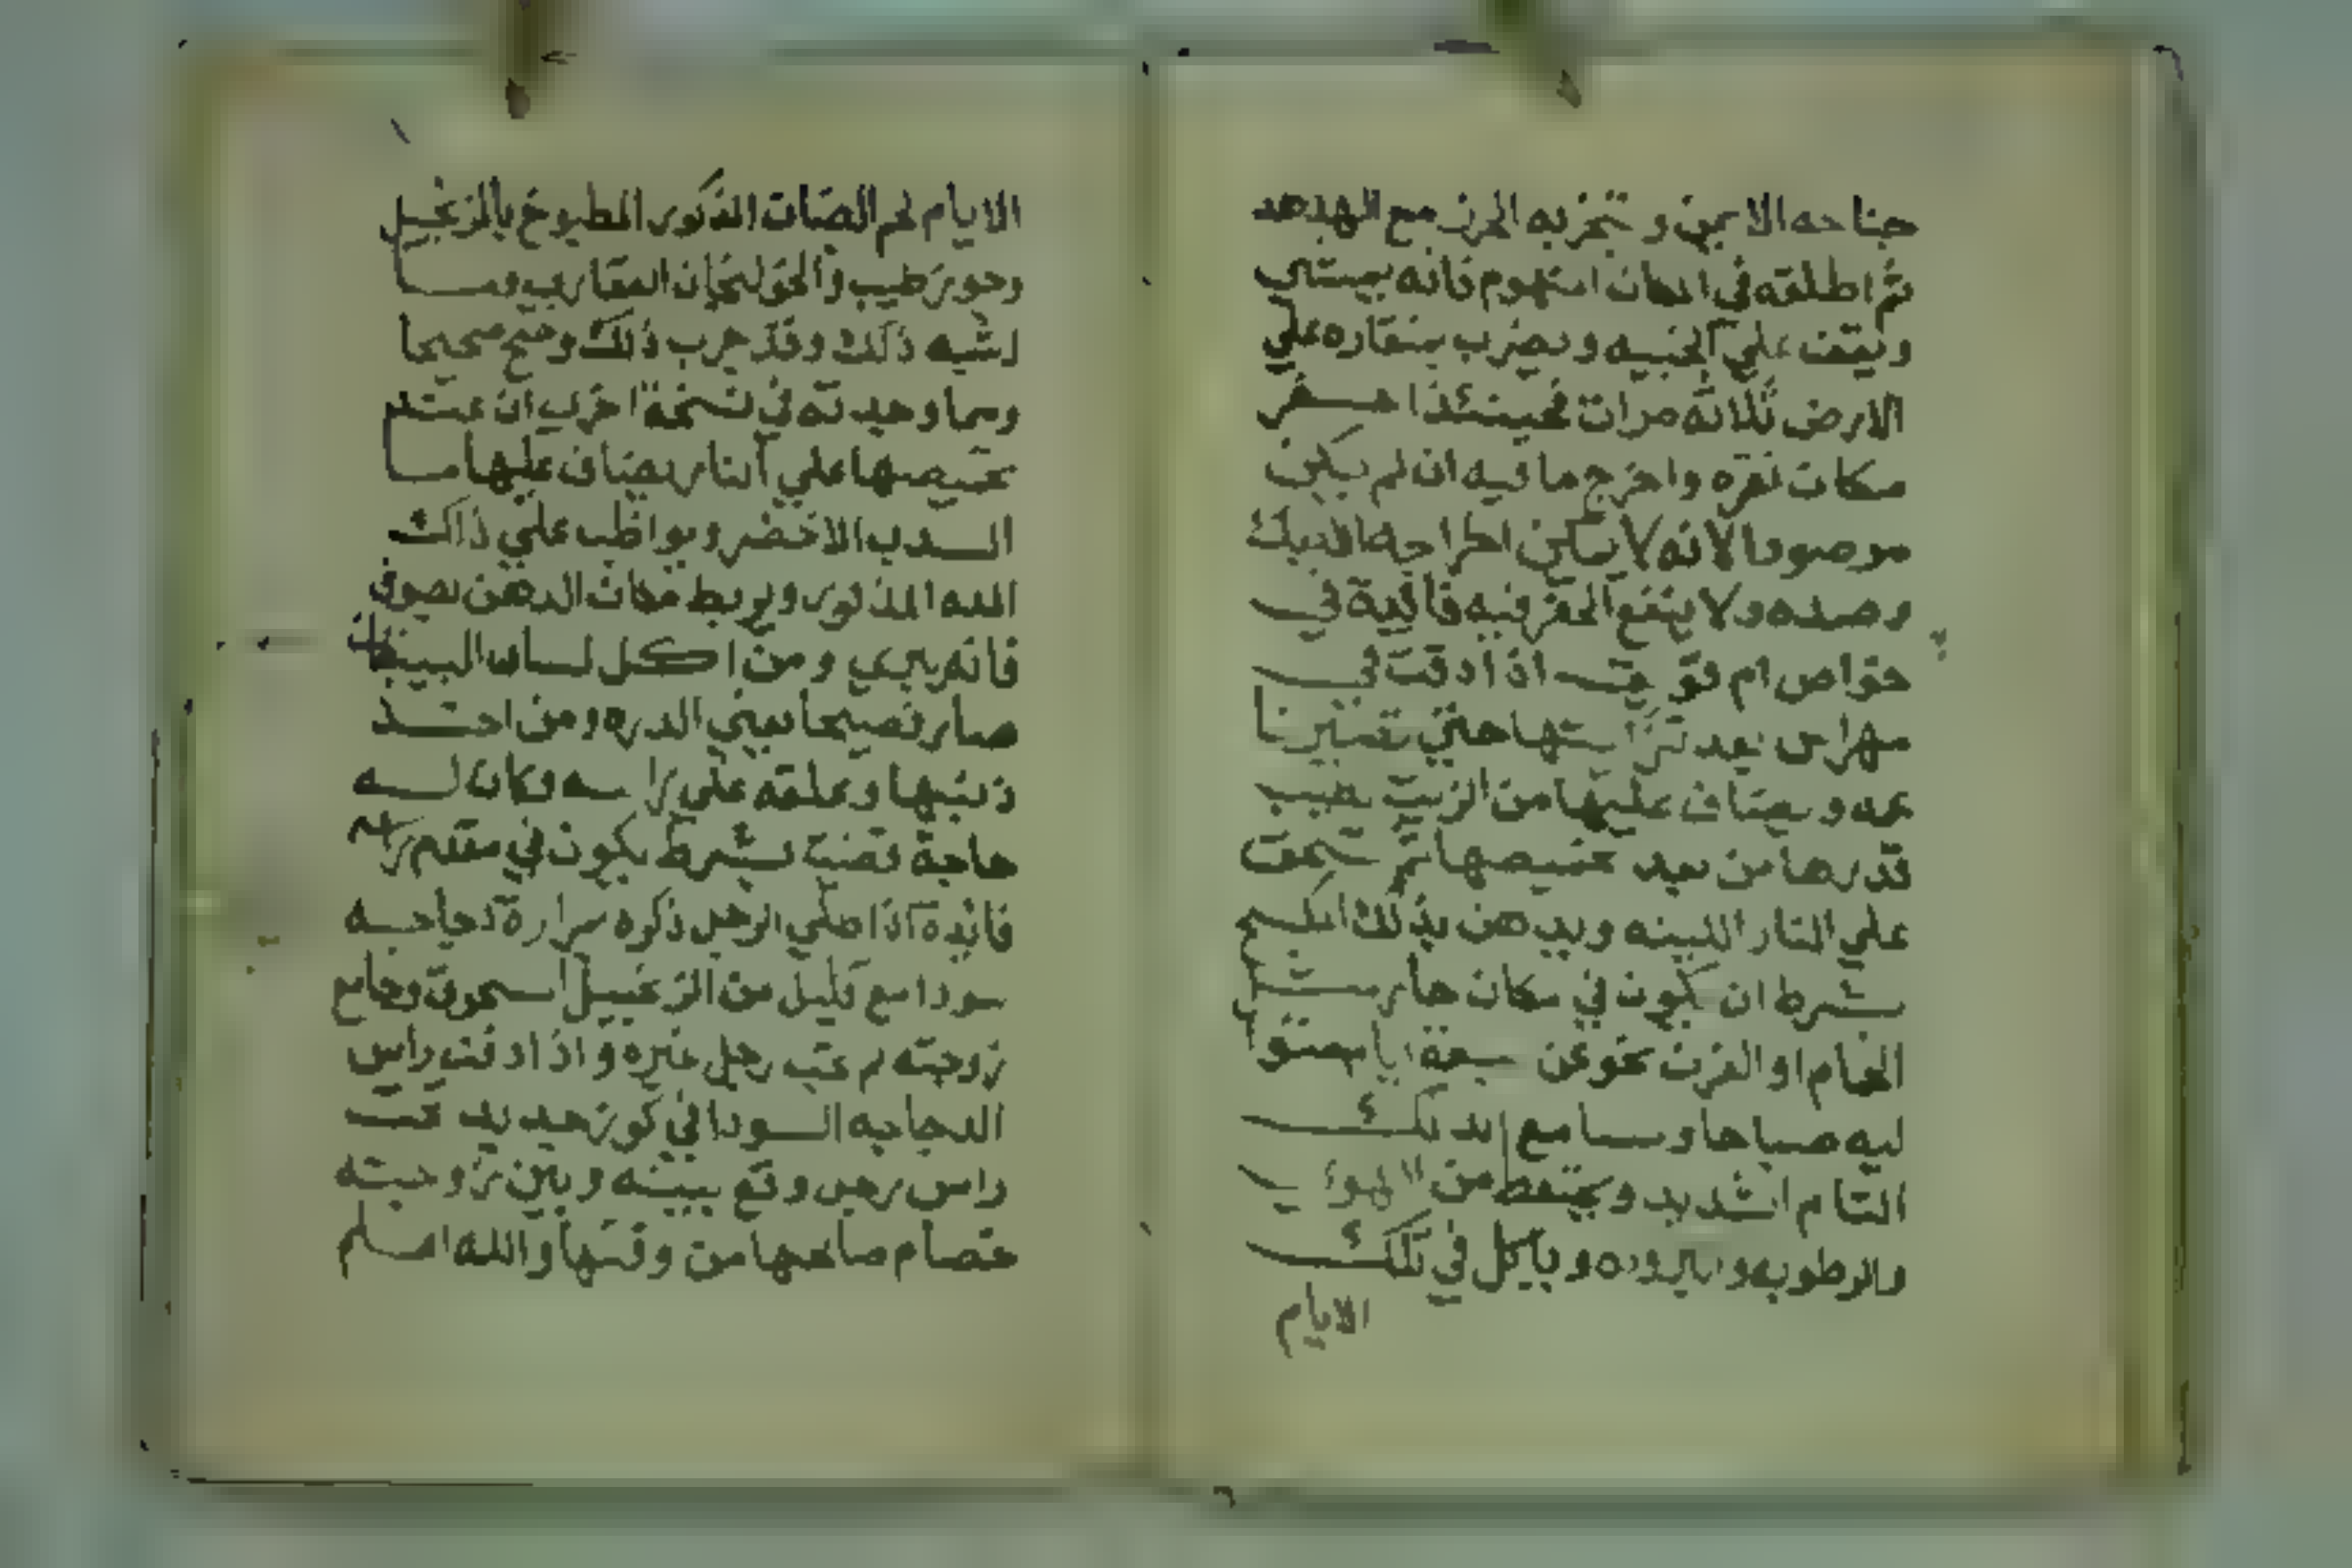 جناحه الايمن و تبخر به الحرز مع الهدهد
ثم اطلقه في المكان المتهوم فانه يمشي
ويقف علي الخبيه ويضرب بمنقاره علي
الارض ثلاثه مرات فحينئذ احفر
مكان نقره واخرج ما فيه ان لم يكن
مرصودا لانه لا يمكن اخراجه الديك
وحده ولا ينفع الحفر فيه فائدة في
خواص ام قويق اذا دقت في
مهراس بعد حتي تقمير نا
عمه و يضاف عليها من الزيت طيب
قدرها من بعد تحميصها ثم تسحق
علي النار اللينه ويدهن بذلك
بشرط ان يكون في مكان حار مثل
الحمام او الفرن نحو من سبعة ايام
ليه صباحا ومسا مع
التام الشديد ويحتفظ من الهوي
والرطوبه والبروده وياكل في تلك
الايام
الايام لحم الضان الذكور المطبوخ بالزنجبيل
وجوز طيب والخولنجان العقاريب وما
اشبه ذلك وقد جرب ذلك وصح صحيحا
ومما وجدته في نسخة اخري ان عند
تحميصها علي النار يضاف عليها ما
السدب الاخضر ويواظب علي ذالك
المده المذكوره ويربط مكان الدهن بصوف
فانه يبري ومن اكل لسان البيضات
صار فصيحا يعني الدره ومن اخذ
ذنبها وعلقه علي راسه وكان له
حاجة قضيت بشرط يكون في مقدم راسه
فايده اذا طلي الرجل ذكره مرارة دجاجه
سودا مع قليل من الزنجبيل مسحوق وجامع
زوجته لم تحب رجل غيره و اذا دفنت راس
الدجاجه السودا في كوز جديد تحت
راس رجل وقع بينه و بين زوجته
خصام صالحها من وقتها والله اعلم